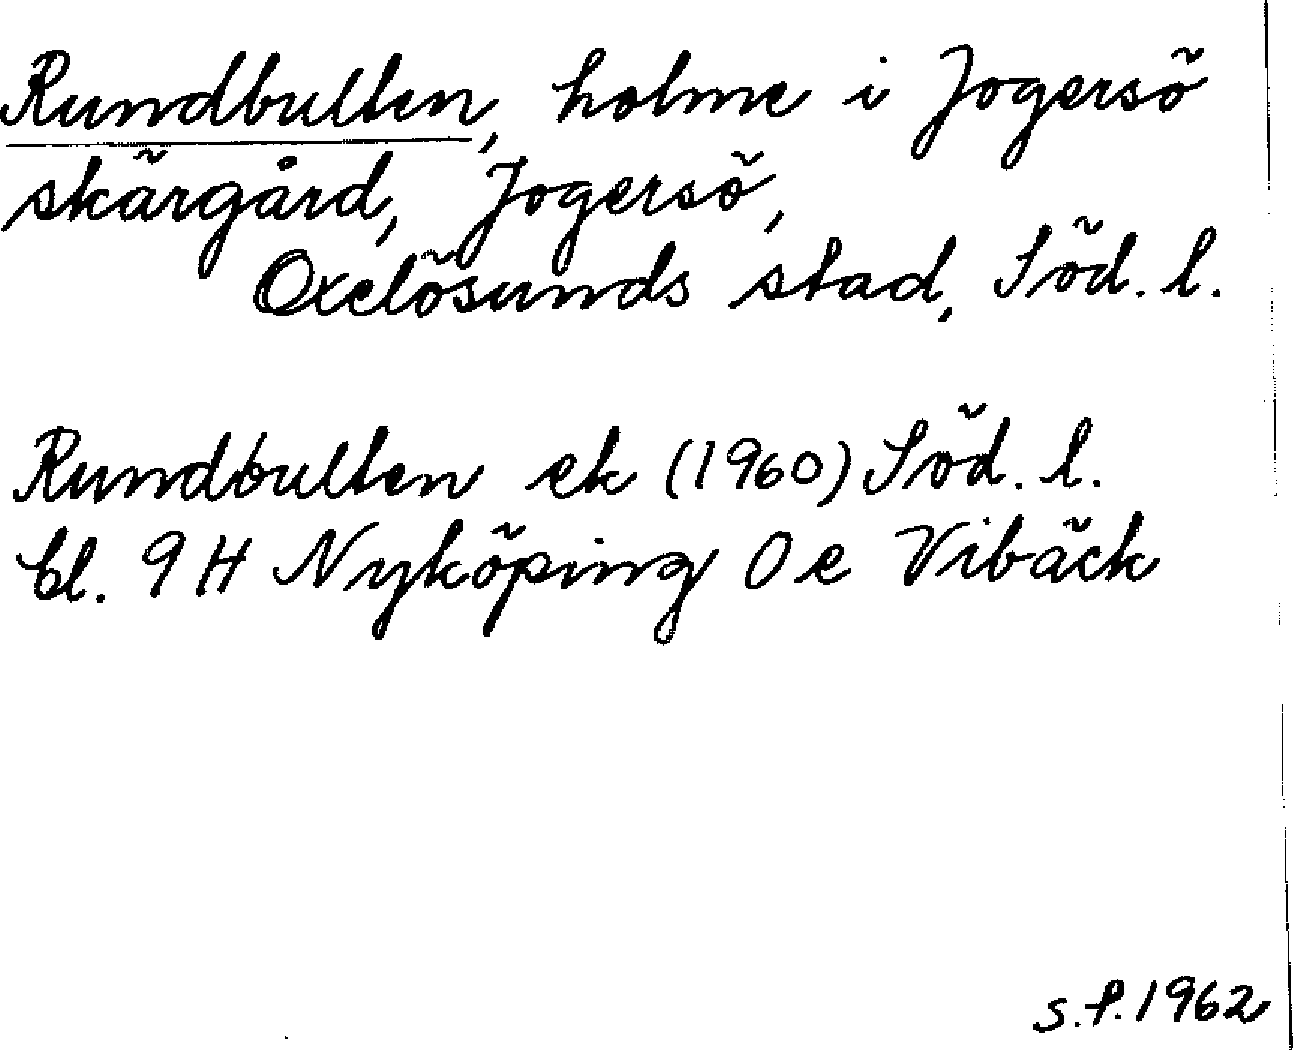 Rundbullen, holme i Jogersö
skärgård, Jogersö,
Oxelösunds stad, Söd. l.
Rundbullen ek (1960) Söd. l.
bl. 9 H Nyköping O e Vibäck
s.f. 1962